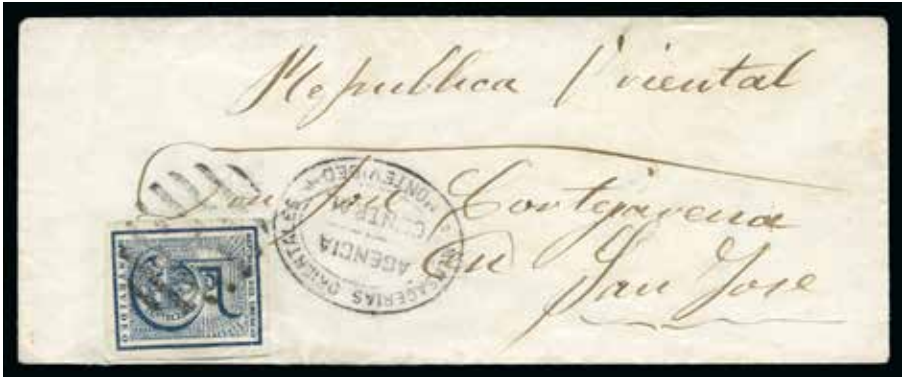 Republica Oriental
Don José
En
San Jose
MENSAGERIAS ORIENTALES
MONTEVIDEO
AGENCIA
CENTRAL
5
MONTEVIDEO